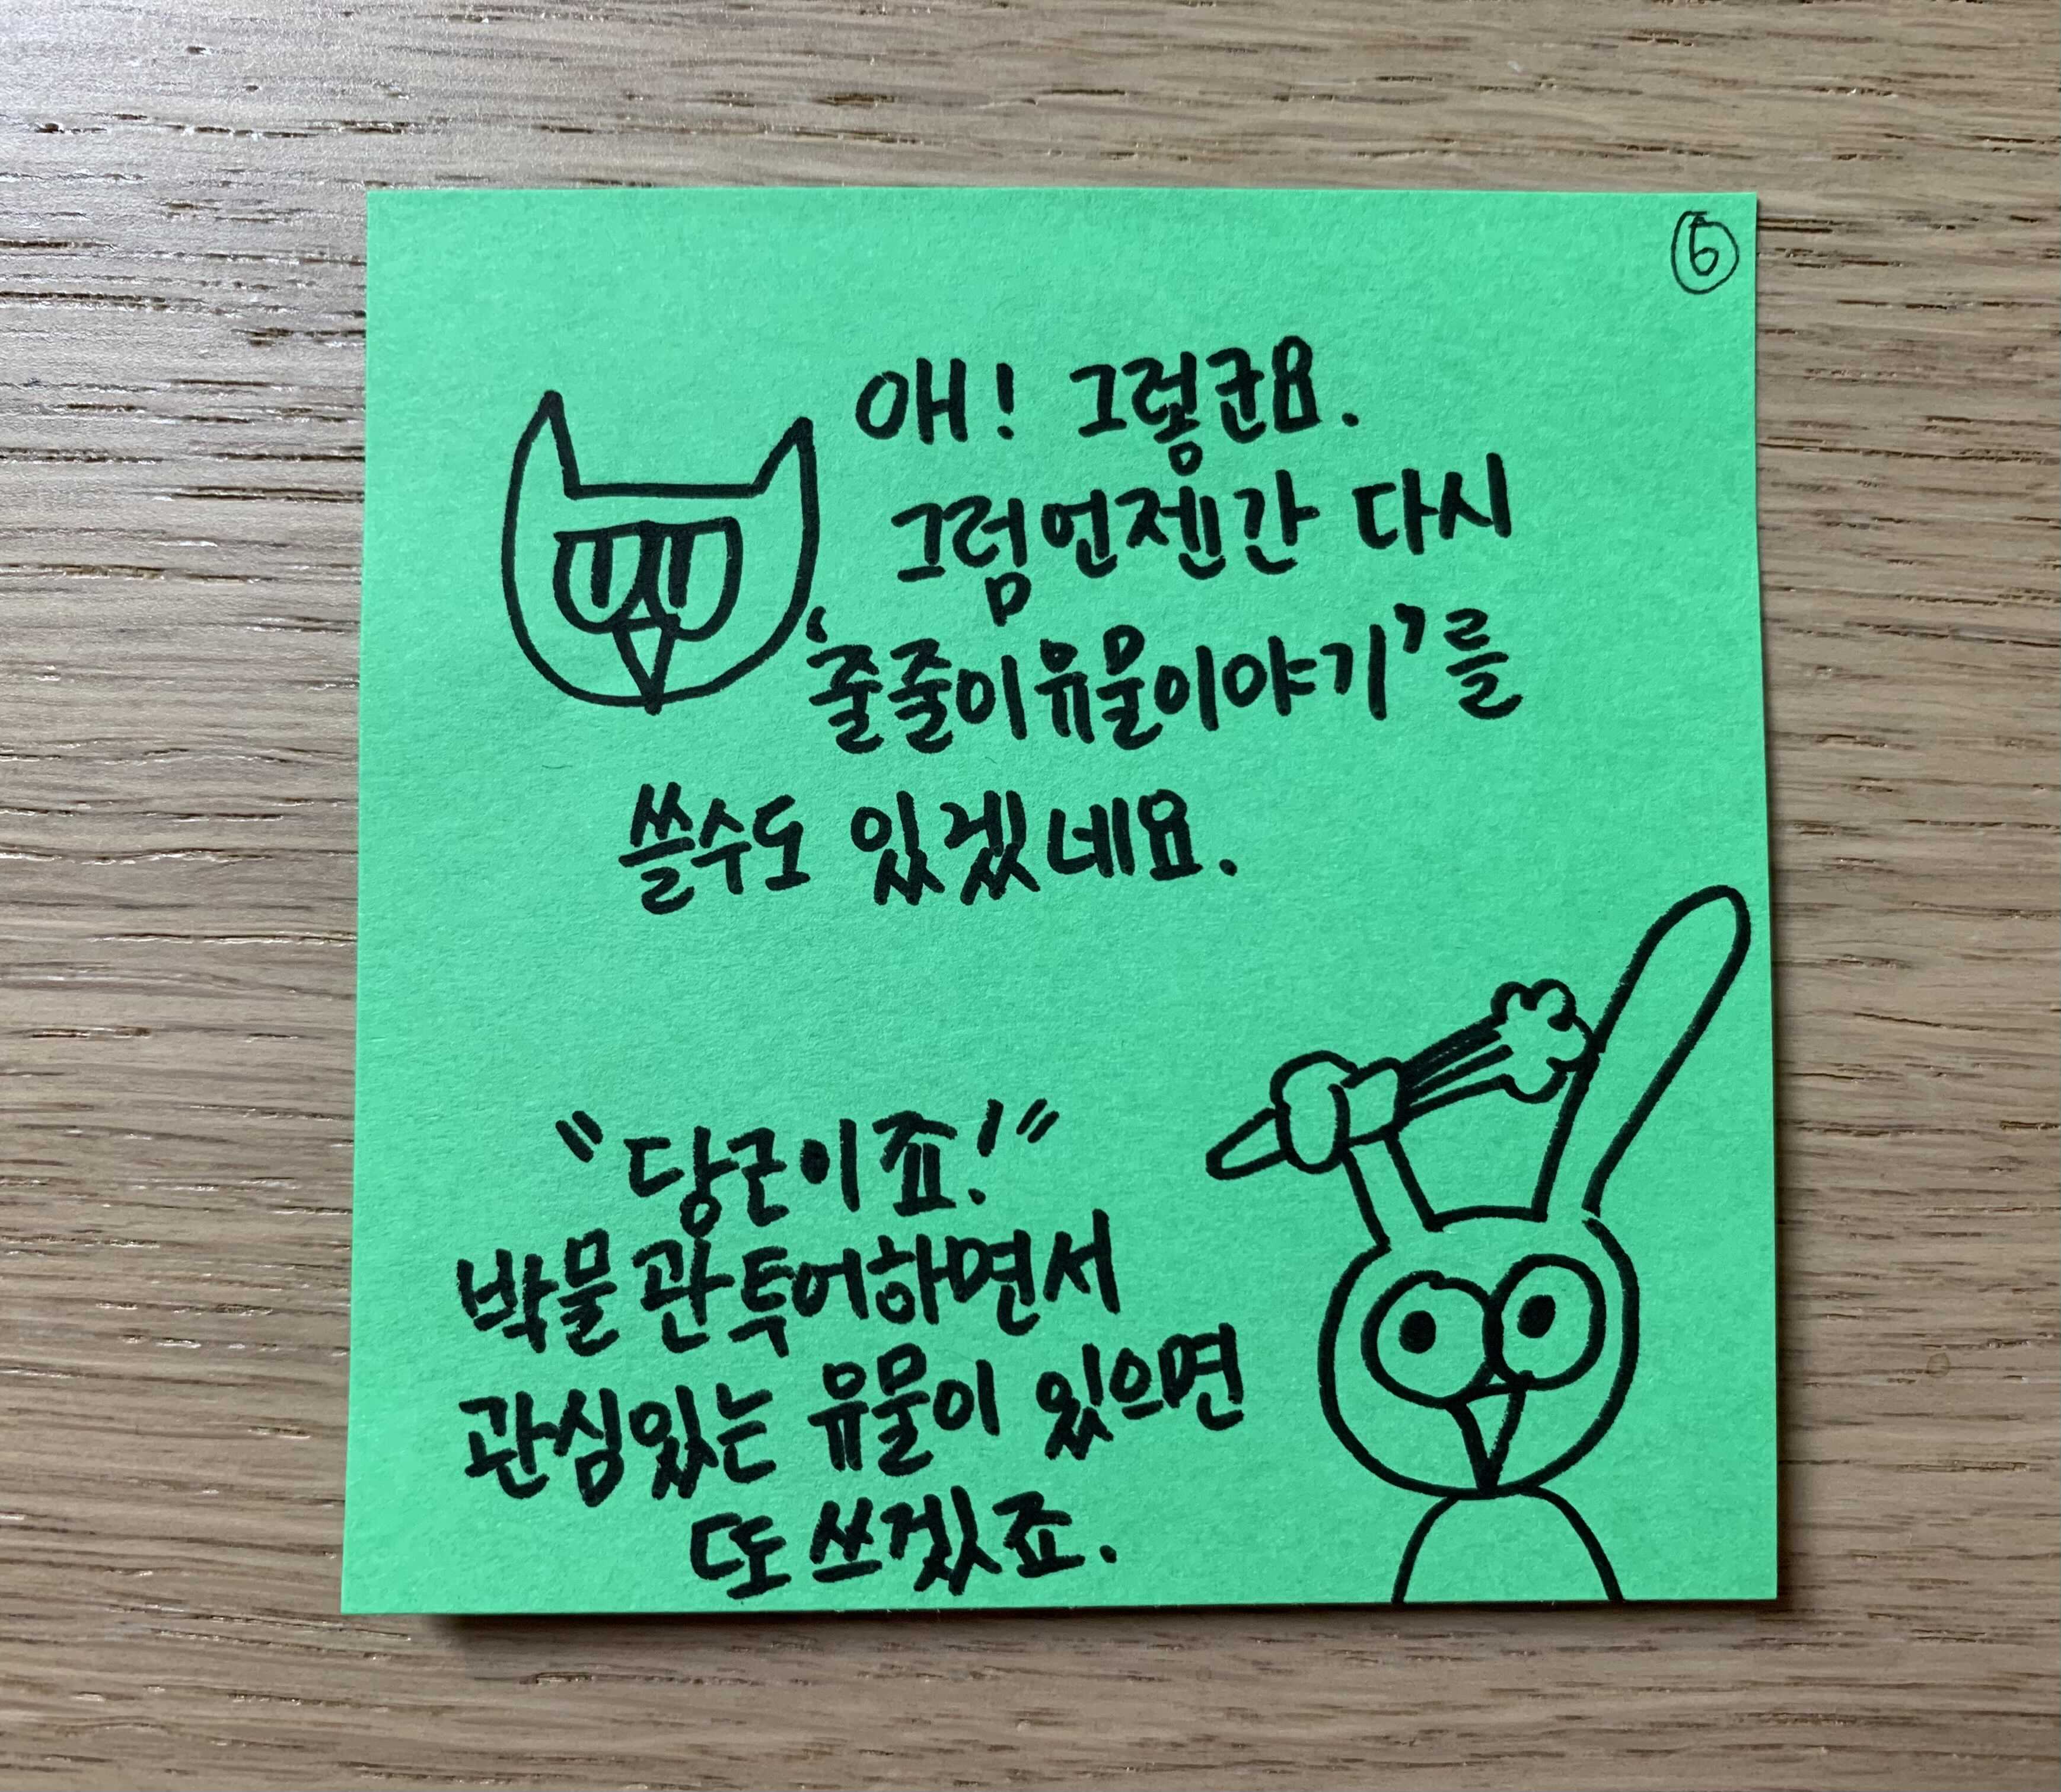 ⑥
애! 그렇군요.
그럼 언젠간 다시
'줄줄이유물이야기'를
쓸수도 있겠네요.
"당근이죠!"
박물관투어하면서
관심있는 유물이 있으면
또 쓰겠죠.